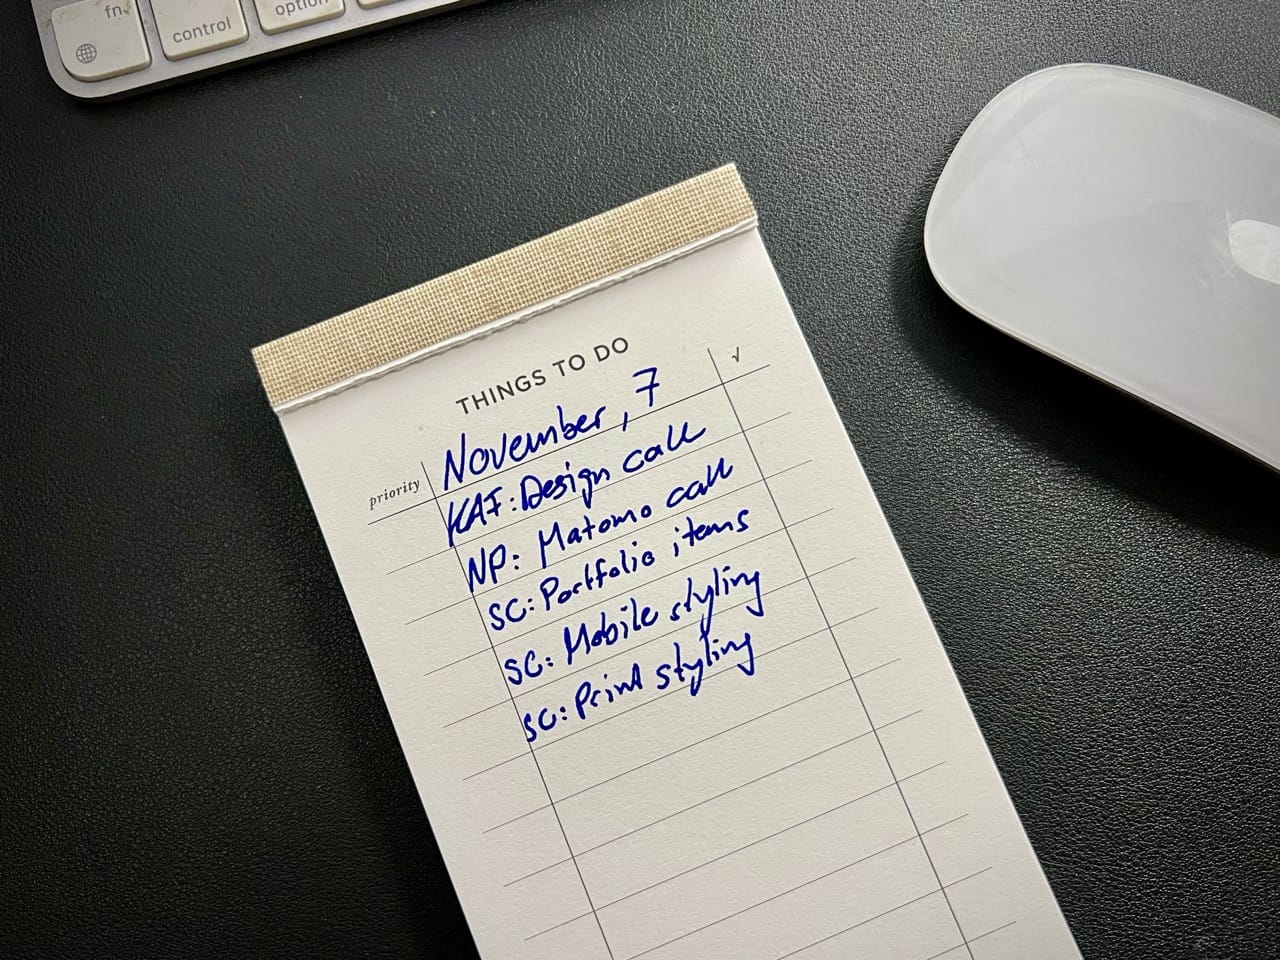 fn
control
option
THINGS TO DO
√
priority
November, 7
KAF: Design call
NP: Matomo call
SC: Portfolio items
SC: Mobile styling
SC: Print styling